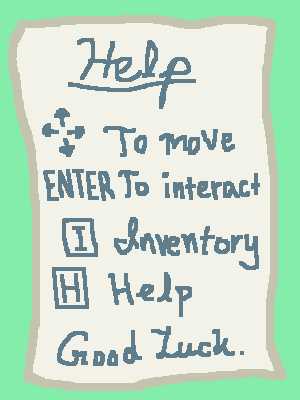 Help
To move
ENTER To interact
I Inventory
H Help
Good Luck.